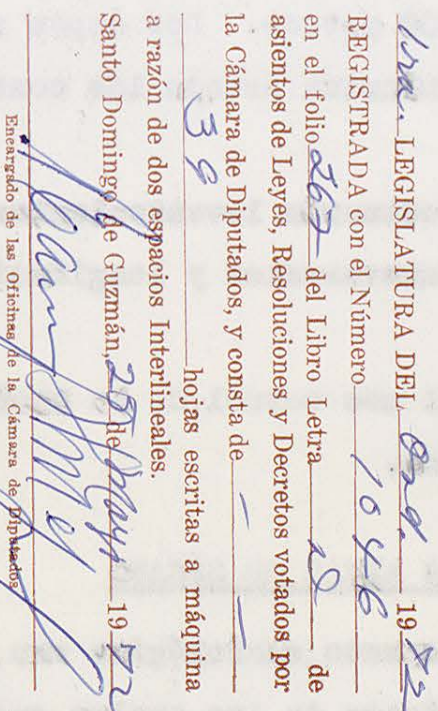 1ra. LEGISLATURA DE Ord. 1972
REGISTRADA con el Número 1046
en el folio 267 del Libro Letra de
asientos de Leyes, Resoluciones y Decretos votados por
la Cámara de Diputados, y consta de
38 hojas escritas a máquina
a razón de dos espacios Interlineales.
Santo Domingo de Guzmán, 25 de Mayo 1972
Encargado de las Oficinas de la Cámara de Diputados